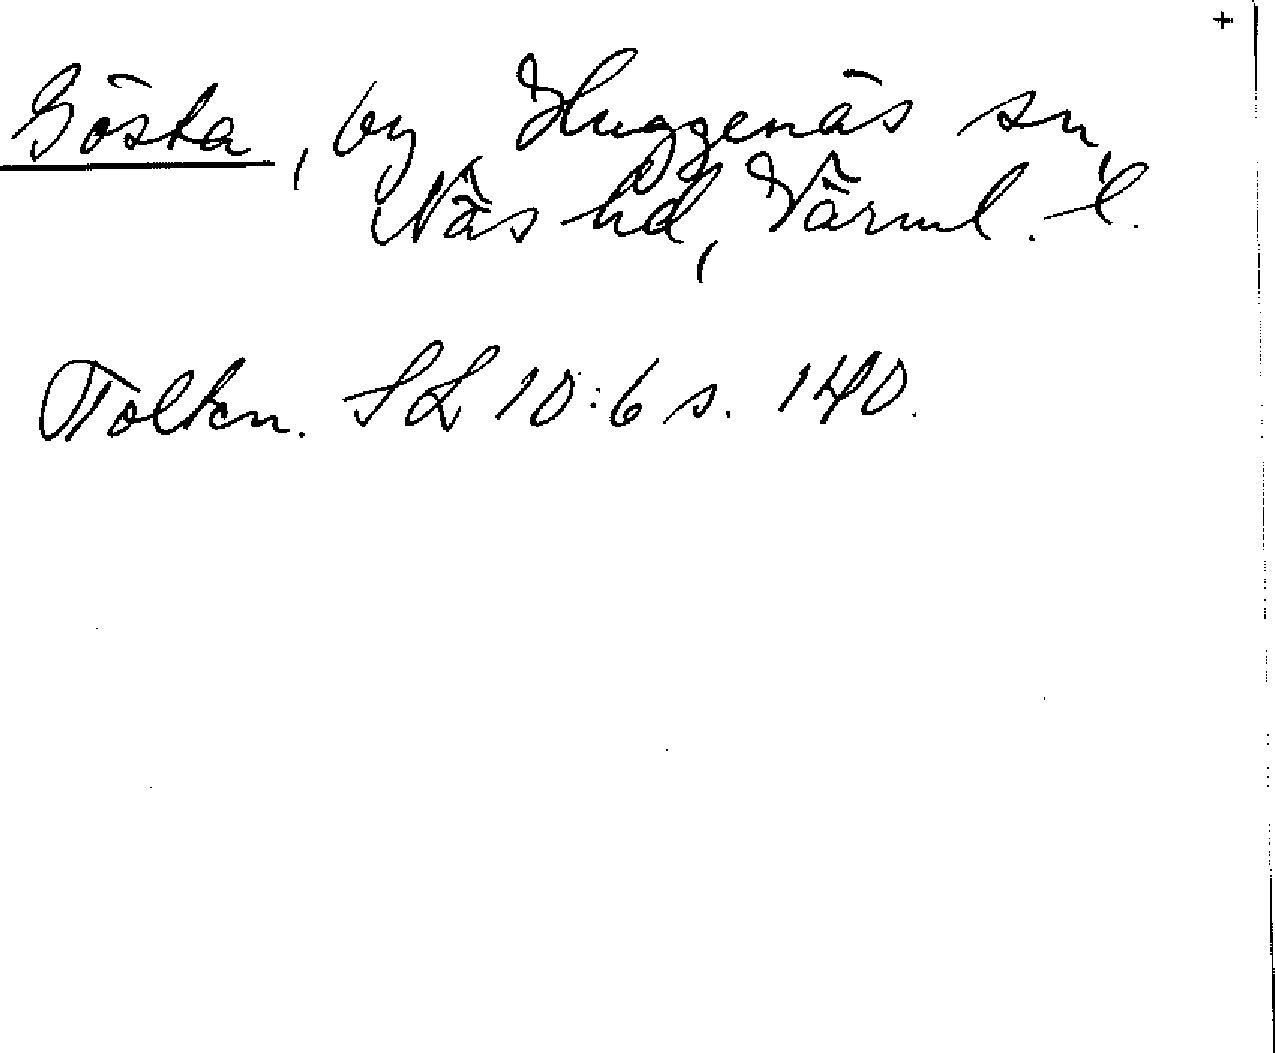 +
Gösta, by Huggenäs sn,
Näs hd, Värml. l.
Tolkn. SL 10:6 s. 140.